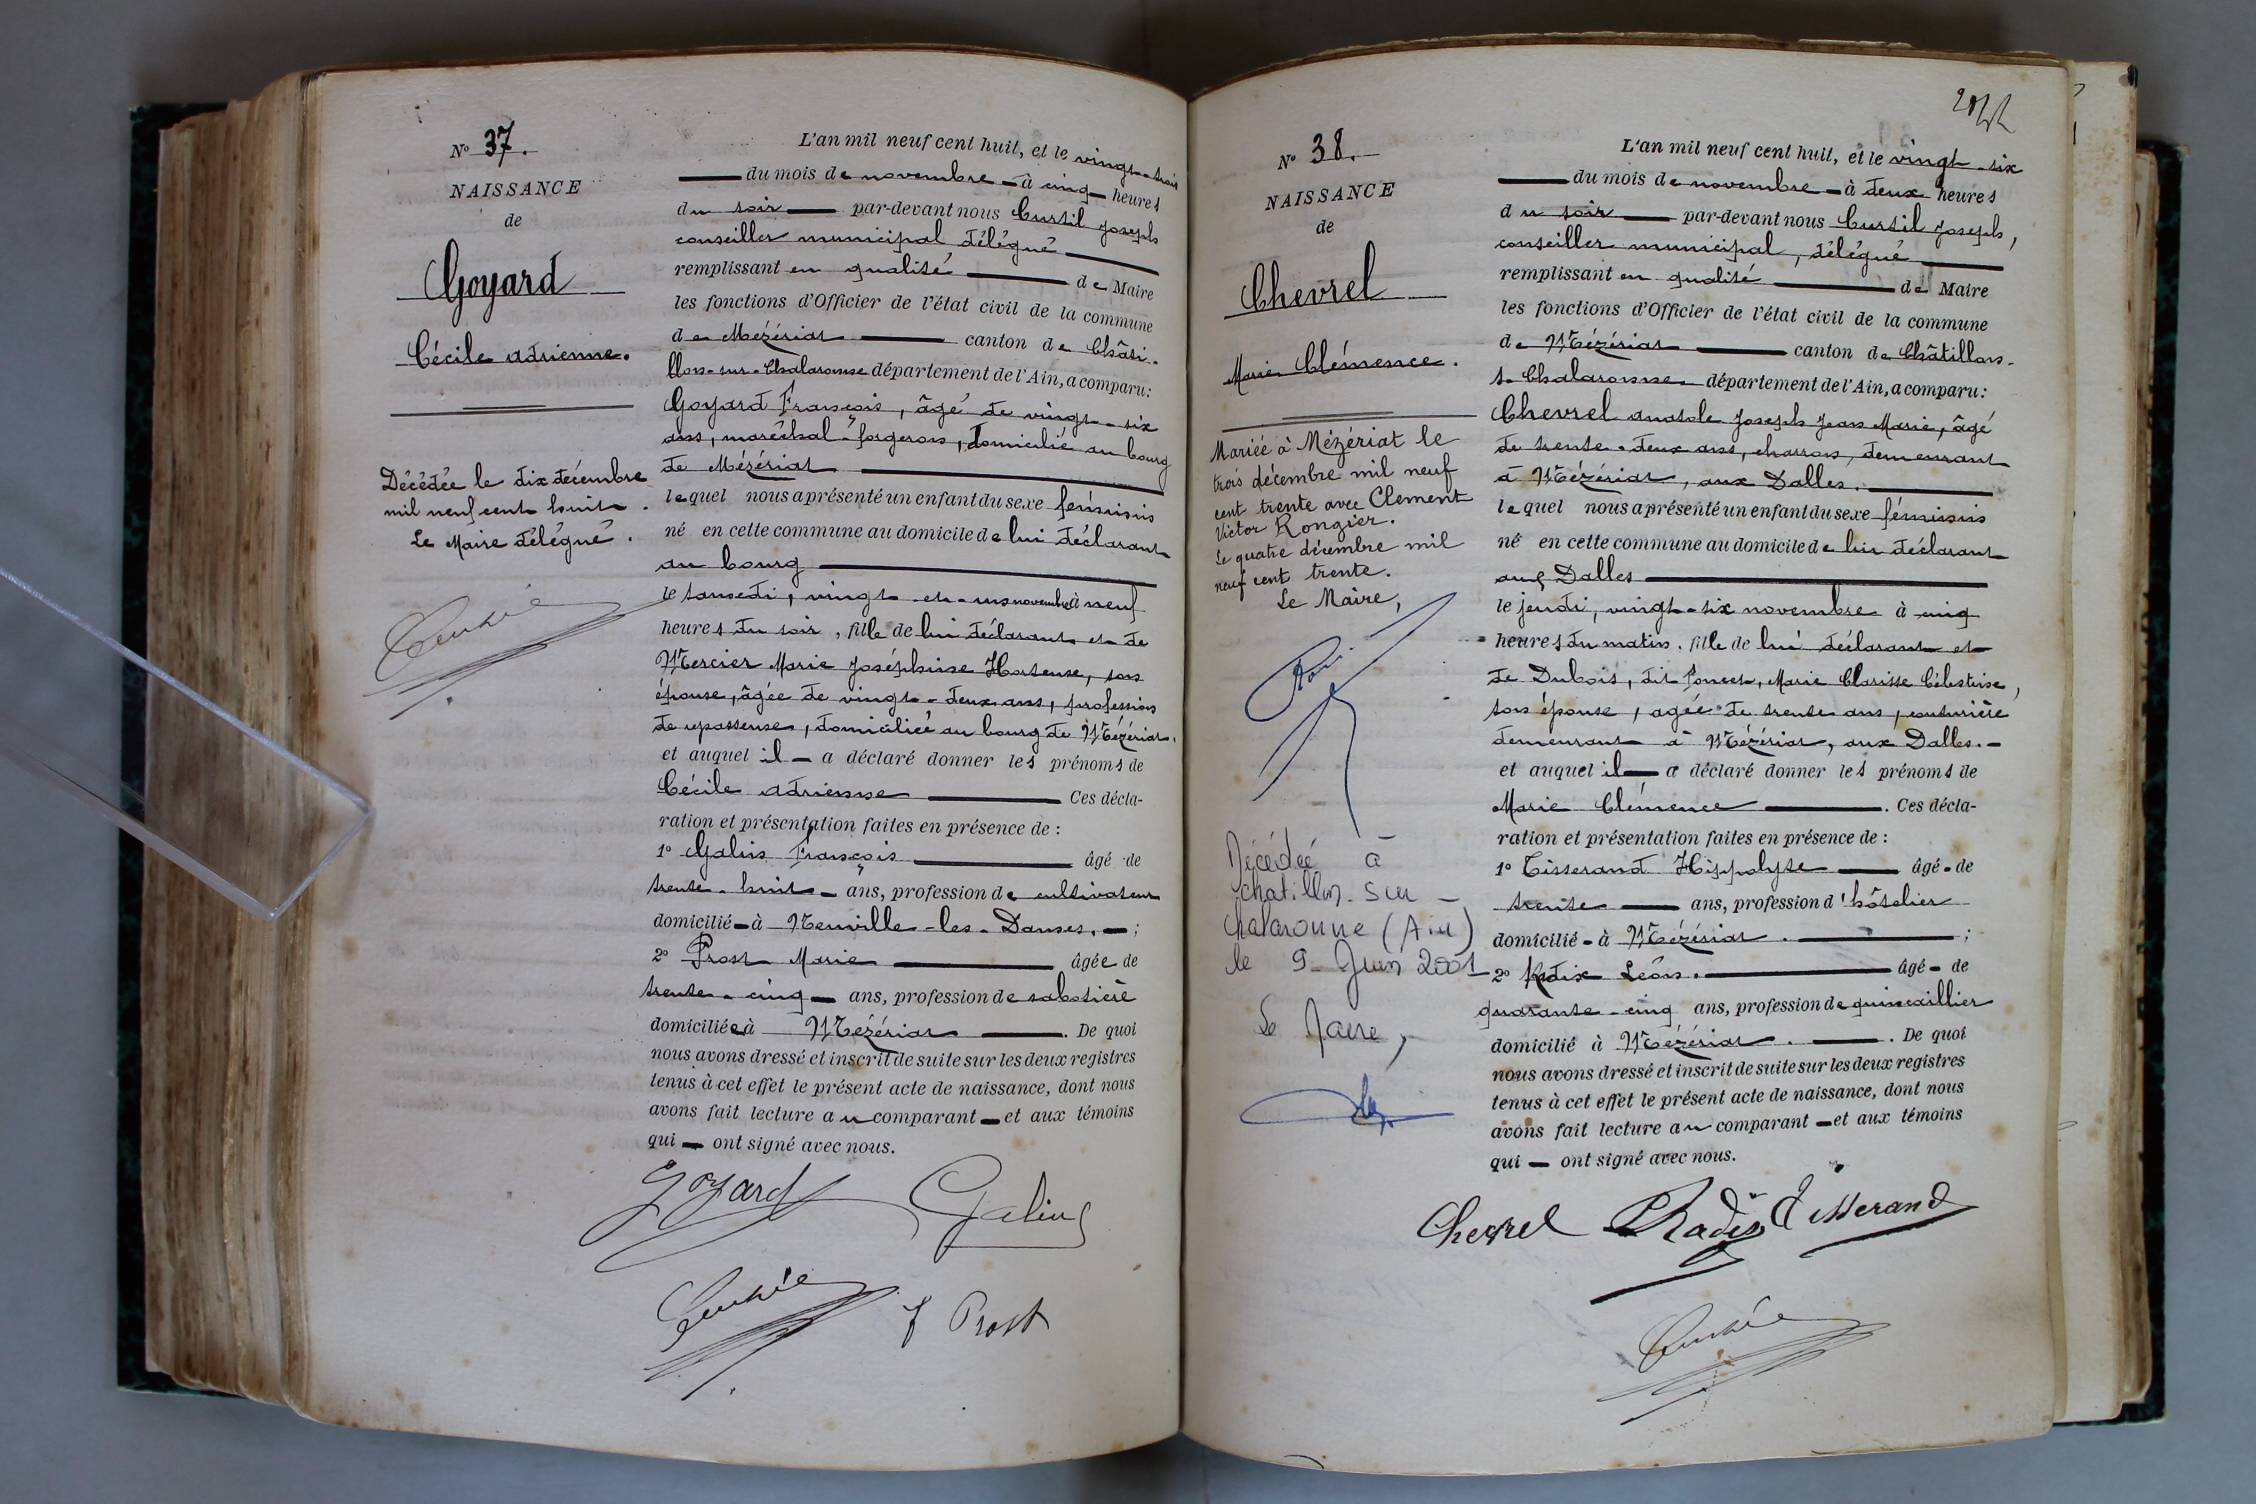 N° 37.
NAISSANCE
de
Goyard
Cécile Adrienne.
Décédée le dix décembre
mil neuf cent huit.
Le Maire délégué.
L'an mil neuf cent huit, et le vingt-trois
du mois de novembre à cinq heures
du soir par-devant nous Curtil Joseph
conseiller municipal délégué
remplissant en qualité de Maire
les fonctions d'Officier de l'état civil de la commune
de Mézériat canton de Châti-
llon-sur-Chalaronne département de l'Ain, a comparu:
Goyard François, âgé de vingt-six
ans, maréchal-forgeron, domicilié au bourg
de Mézériat
lequel nous a présenté un enfant du sexe féminin
né en cette commune au domicile de lui déclarant
au bourg
le samedi, vingt-et-un novembre à neuf
heures du soir, fille de lui déclarant et de
Mercier Marie Joséphine Hortense, son
épouse, âgée de vingt-deux ans, profession
de repasseuse, domiciliée au bourg de Mézériat.
et auquel il a déclaré donner les prénoms de
Cécile Adrienne Ces décla-
ration et présentation faites en présence de :
1° Galin François âgé de
trente-huit ans, profession de cultivateur
domicilié à Neuville-les-Dames. ;
2° Prost Marie âgée de
trente-cinq ans, profession de sabotière
domiciliée à Mézériat. De quoi
nous avons dressé et inscrit de suite sur les deux registres
tenus à cet effet le présent acte de naissance, dont nous
avons fait lecture au comparant et aux témoins
qui ont signé avec nous.
Goyard Galin
Prost
N° 38.
NAISSANCE
de
Chevrel
Marie Clémence.
Mariée à Mézériat le
trois décembre mil neuf
cent trente avec Clement
Victor Rongier.
Le quatre décembre mil
neuf cent trente.
Le Maire,
Décédée à
Chatillon-sur-
Chalaronne (Ain)
le 9 Juin 2001
Le Maire,
L'an mil neuf cent huit, et le vingt-six
du mois de novembre à deux heures
du soir par-devant nous Curtil Joseph,
conseiller municipal, délégué
remplissant en qualité de Maire
les fonctions d'Officier de l'état civil de la commune
de Mézériat canton de Châtillon-
s-Chalaronne département de l'Ain, a comparu:
Chevrel Anatole Joseph Jean Marie, âgé
de trente-deux ans, charron, demeurant
à Mézériat, aux Dalles.
lequel nous a présenté un enfant du sexe féminin
né en cette commune au domicile de lui déclarant
aux Dalles
le jeudi, vingt-six novembre à cinq
heures du matin, fille de lui déclarant et
de Dubois, dit Poncet, Marie Clarisse Célestine,
son épouse, agée de trente ans, couturière
demeurant à Mézériat, aux Dalles.
et auquel il a déclaré donner les prénoms de
Marie Clémence. Ces décla-
ration et présentation faites en présence de :
1° Tisserand Hippolyte âgé de
trente ans, profession d'hôtelier
domicilié à Mézériat. ;
2° Radix Léon. âgé de
quarante-cinq ans, profession de quincaillier
domicilié à Mézériat. De quoi
nous avons dressé et inscrit de suite sur les deux registres
tenus à cet effet le présent acte de naissance, dont nous
avons fait lecture au comparant et aux témoins
qui ont signé avec nous.
Chevrel Radix Tisserand